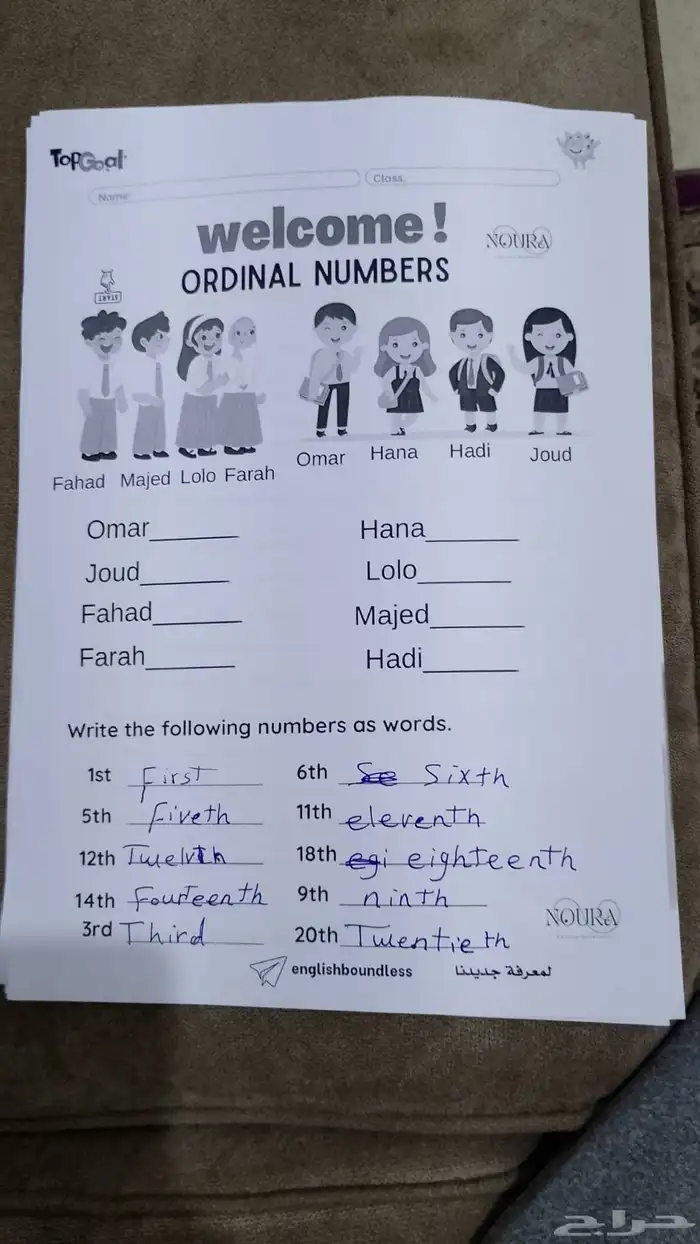 TopGoal
Name: Class:
welcome!
NOURA
ORDINAL NUMBERS
START
Fahad Majed Lolo Farah Omar Hana Hadi Joud
Omar______ Hana______
Joud______ Lolo______
Fahad______ Majed______
Farah______ Hadi______
Write the following numbers as words.
1st First 6th Se Sixth
5th fiveth 11th eleventh
12th Twelvth 18th egi eighteenth
14th fourteenth 9th ninth
NOURA
3rd Third 20th Twentieth
englishboundless لمعرفة جديدنا
حراج